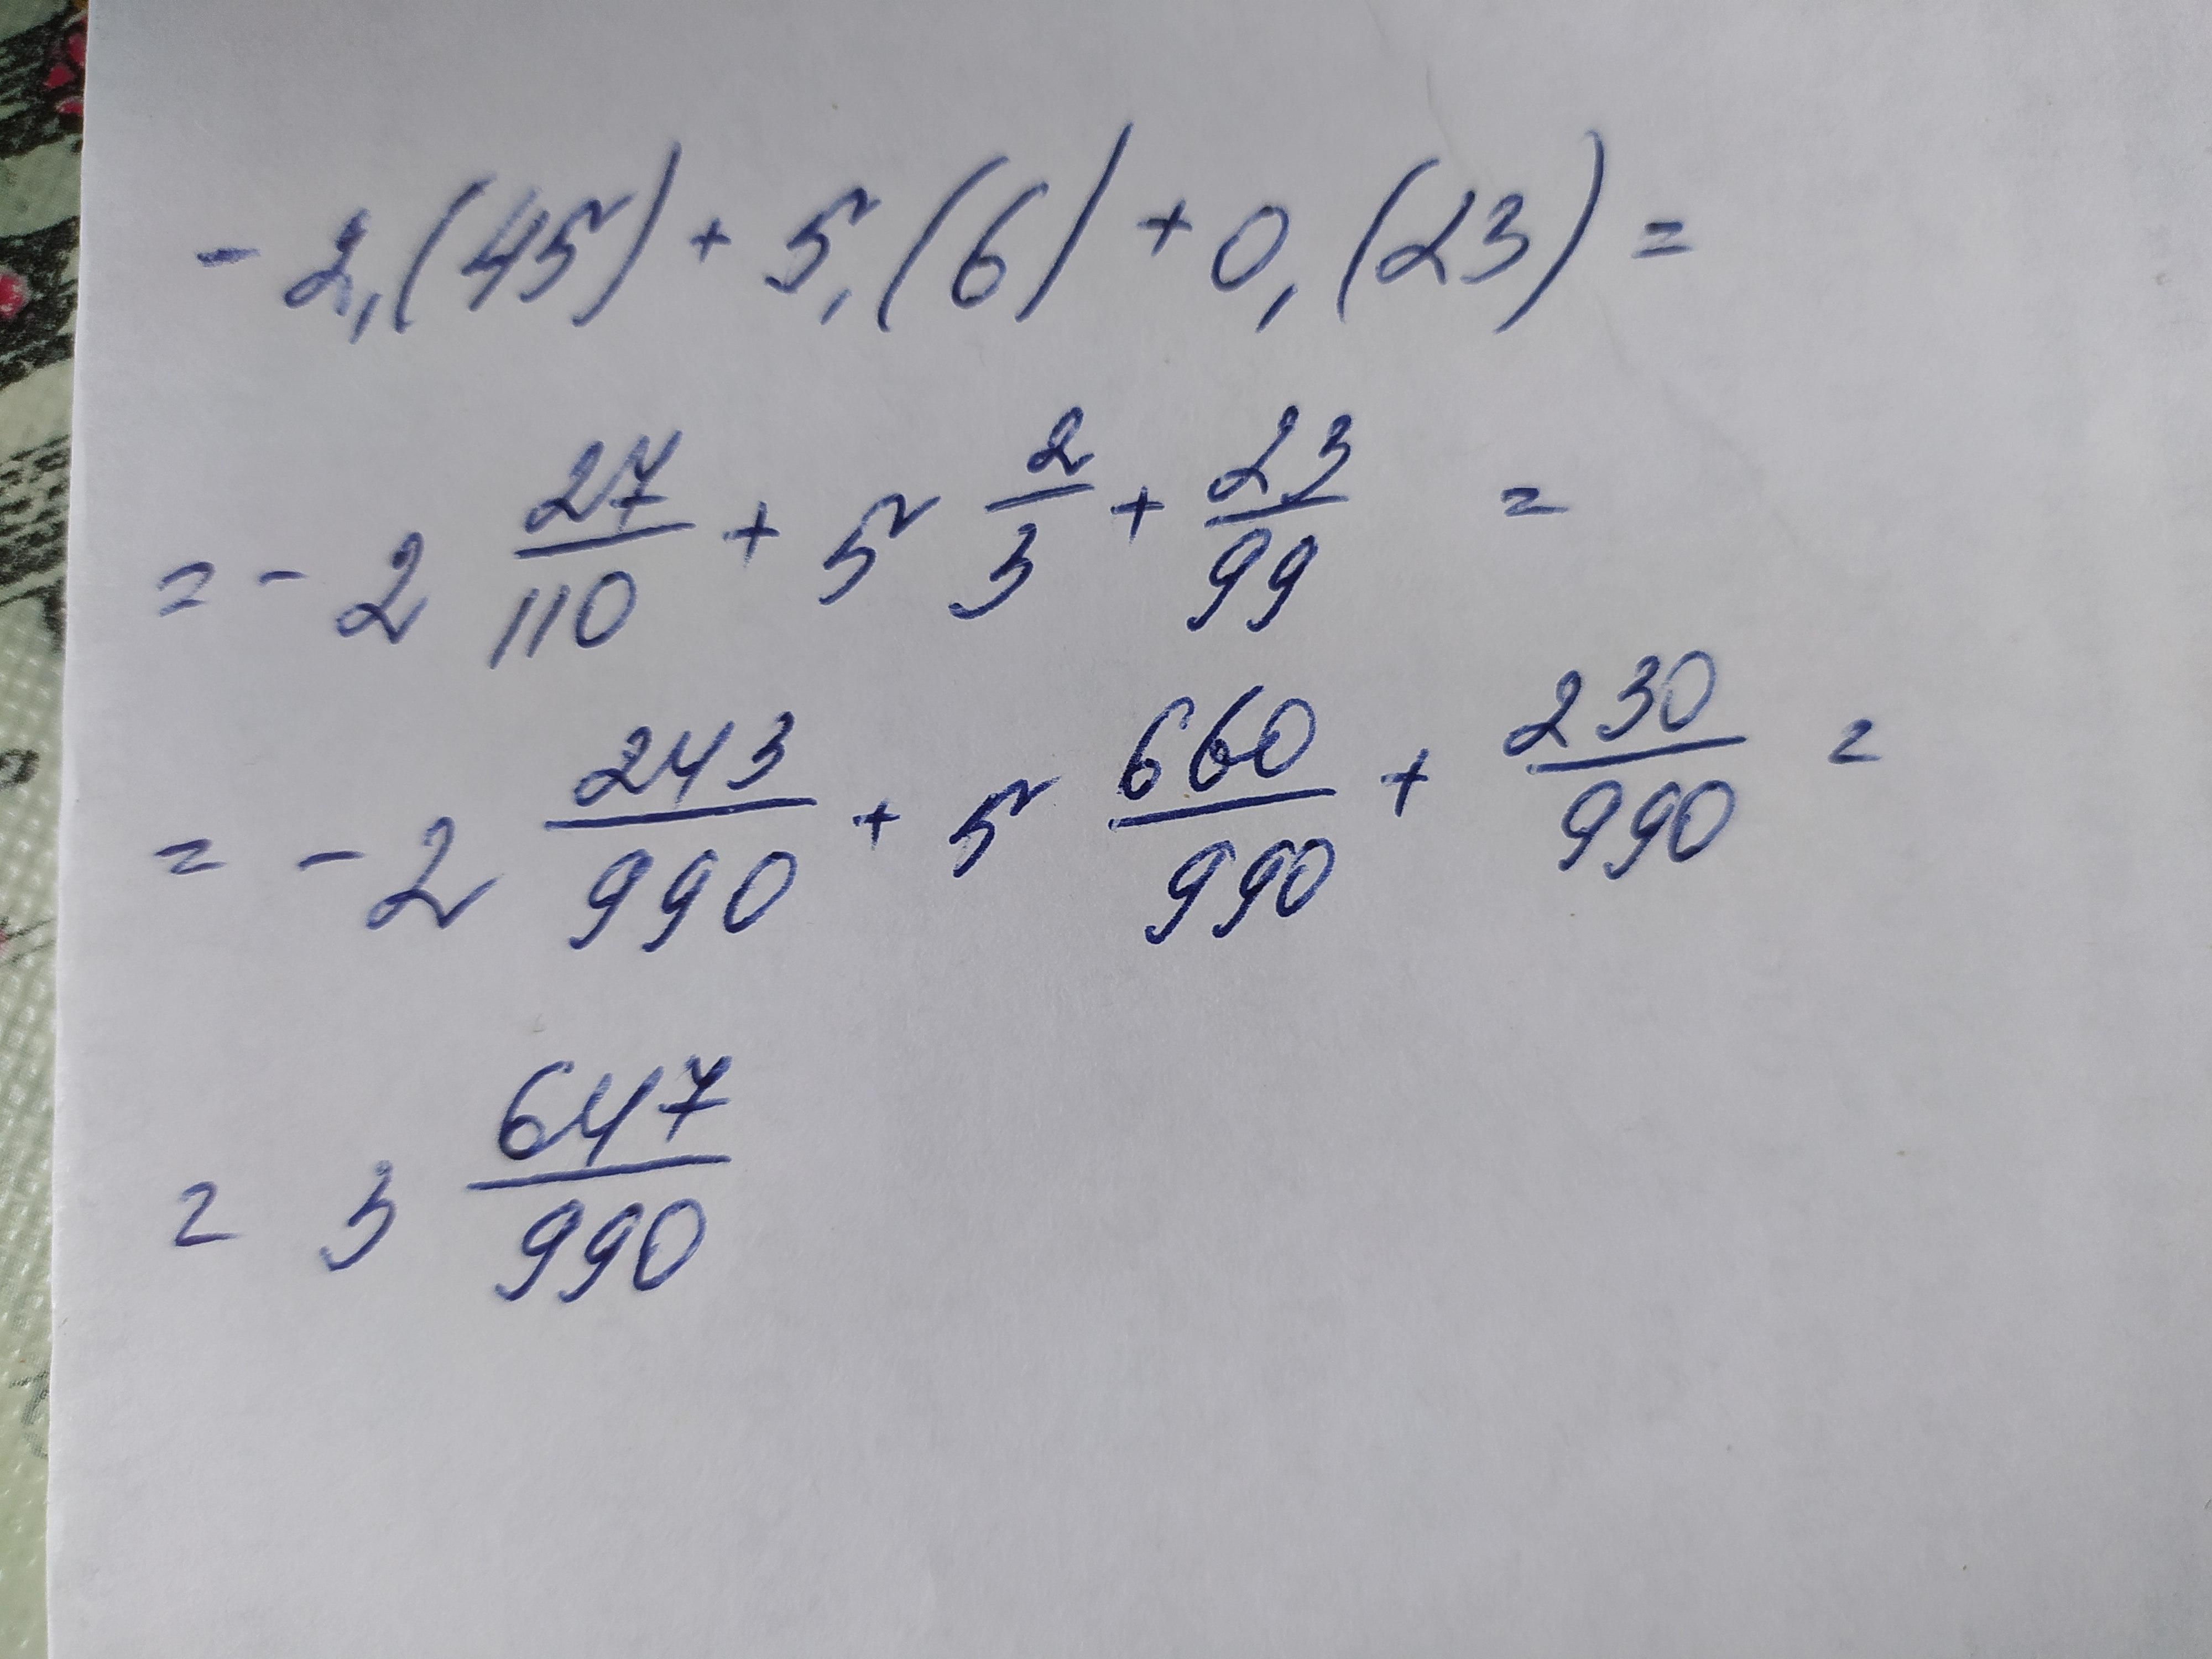 - 2,(45) + 5,(6) + 0,(23) =
= - 2 27/110 + 5 2/3 + 23/99 =
= - 2 243/990 + 5 660/990 + 230/990 =
= 3 647/990